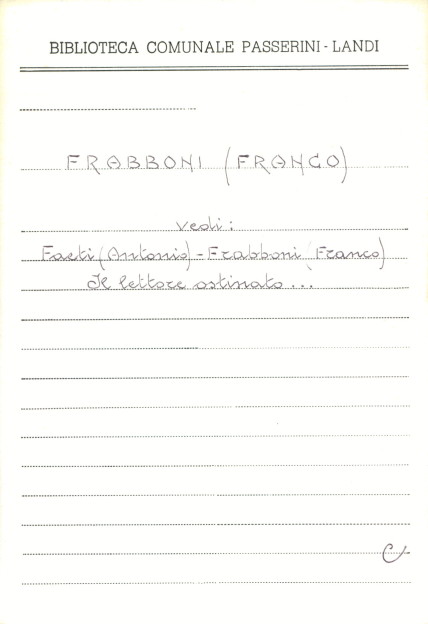 BIBLIOTECA COMUNALE PASSERINI - LANDI
FRABBONI (FRANCO)
vedi:
Faeti (Antonio) - Frabboni (Franco)
Il lettore ostinato...